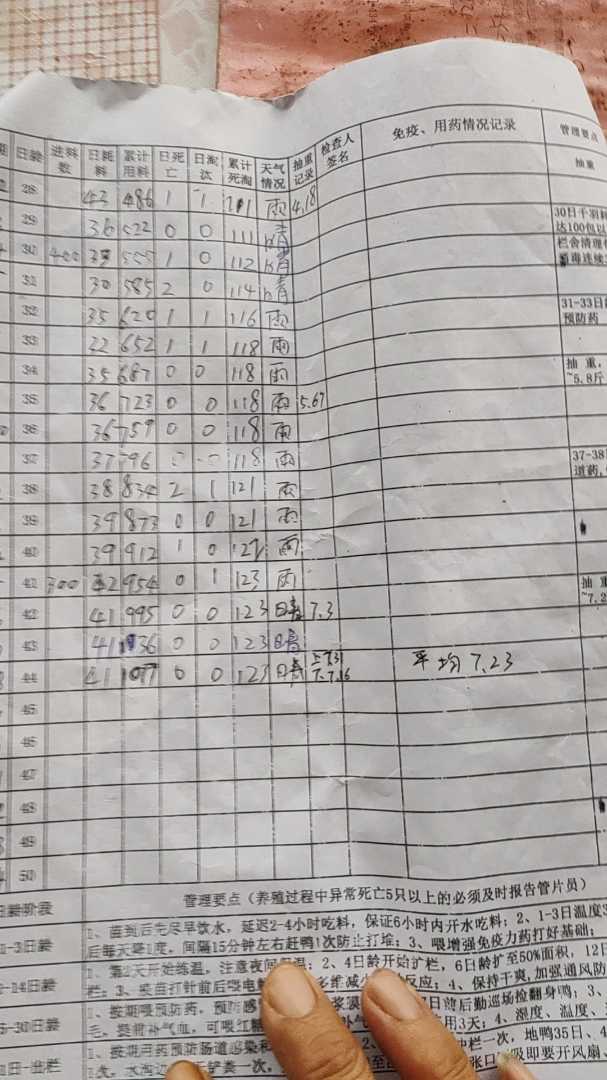 日龄 进料数 日耗料 累计用料 日死亡 日淘汰 累计死淘 天气情况 抽重记录 检查人签名 免疫、用药情况记录 管理要点
抽重
28 43 486 1 1 111 雨 4.18
29 36 522 0 0 111 晴
30 400 33 555 1 0 112 晴
31 30 585 2 0 114 晴
32 35 620 1 1 116 雨
33 22 652 1 1 118 雨
34 35 687 0 0 118 雨
35 36 723 0 0 118 雨 5.67
36 36 759 0 0 118 雨
37 37 796 0 0 118 雨
38 38 834 2 1 121 雨
39 39 873 0 0 121 雨
40 39 912 1 0 122 雨
41 300 42 954 0 1 123 雨
42 41 995 0 0 123 晴 7.3
43 41 1036 0 0 123 晴
44 41 1077 0 0 123 晴 上7.31 下7.16 平均 7.23
45
46
47
48
49
50
30日千羽
达100包以
栏舍清理
毒连续
31-33日
预防药
抽重,
~5.8斤
37-38
道药,
抽重
~7.2
管理要点(养殖过程中异常死亡5只以上的必须及时报告管片员)
日龄阶段
1-3日龄 1、苗到后先尽早饮水,延迟2-4小时吃料,保证6小时内开水吃料;2、1-3日温度3
后每天降1度,间隔15分钟左右赶鸭1次防止打堆;3、喂增强免疫力药打好基础;
-14日龄 1、第2天开始练温,注意夜间保温;2、4日龄开始扩栏,6日龄扩至50%面积,12日
栏;3、疫苗打针前后喂电解多维减小应激反应;4、保持干爽,加强通风防
5-30日龄 1、按期喂预防药,预防感 浆膜 前后勤巡场捡翻身鸭;3、
毛,提前补气血,可喂红糖 用3天;4、湿度、温度、
1日-出栏 1、按期用药预防肠道感染 中栏一次,地鸭35日、4
一次, 张口 吸即要开风扇